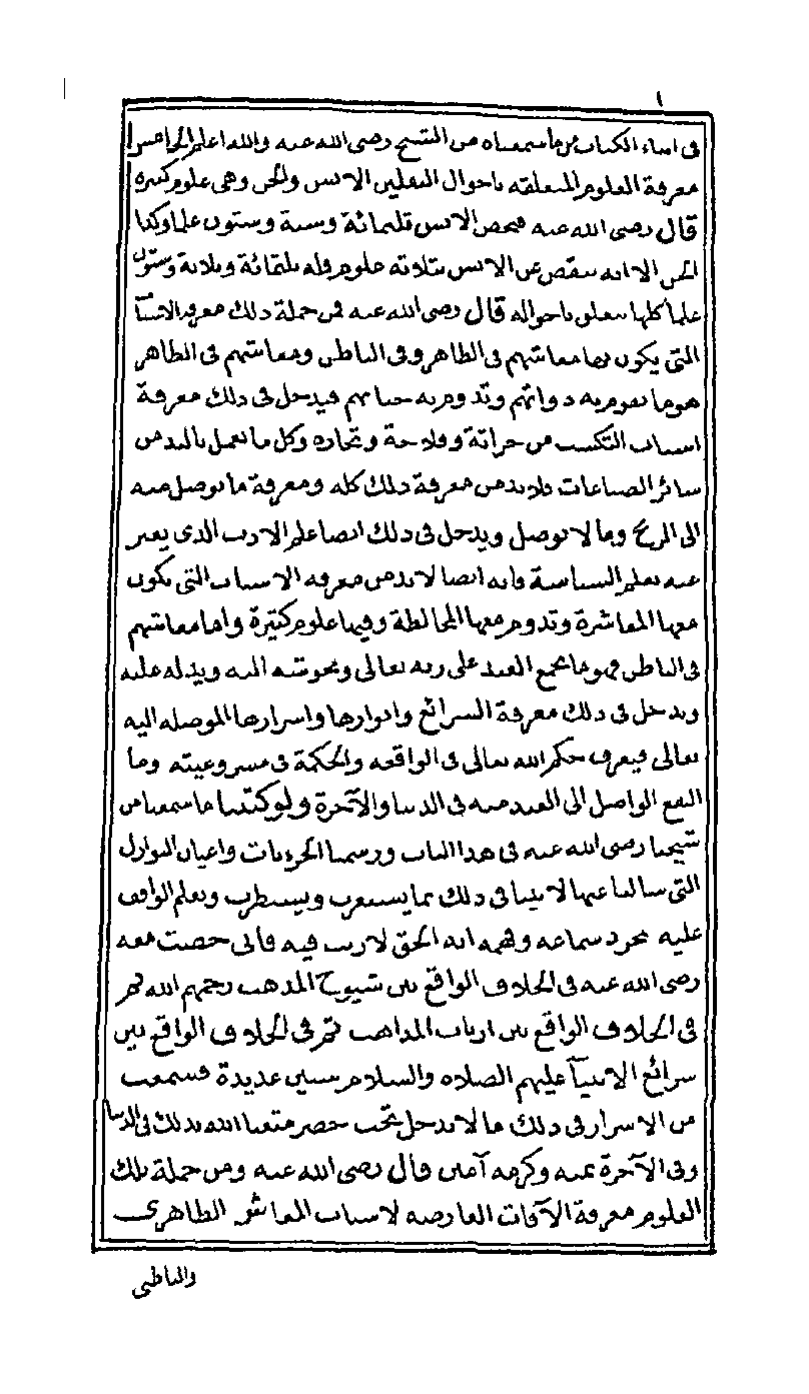 ١
في اثناء الكتاب من ما سمعناه من الشيخ رضي الله عنه والله اعلم الخامس
معرفة العلوم المتعلقه باحوال الثقلين الانس والجن وهي علوم كثيره
قال رضي الله عنه فيخص الانس ثلثمائة وستة وستون علما وكذا
الجن الا انه ينقص عن الانس بثلاثه علوم فله ثلثمائة وثلاثة وستون
علما كلها تتعلق باحواله قال رضي الله عنه فمن جملة ذلك معرفه الاسباب
التي يكون بها معاشهم في الظاهر وفي الباطن ومعاشهم في الظاهر
هو ما تقوم به ذواتهم وتدوم به حياتهم فيدخل في ذلك معرفة
اسباب التكسب من حراثة وفلاحة وتجاره وكل ما يعمل باليد من
سائر الصناعات فلا بد من معرفة ذلك كله ومعرفة ما يوصل منه
الى الربح وما لا يوصل ويدخل في ذلك ايضا علم الادب الذي يعبر
عنه بعلم السياسة فانه ايضا لا بد من معرفه الاسباب التي تكون
معها المعاشرة وتدوم معها المخالطة وفيها علوم كثيرة واما معاشهم
في الباطن فهو ما يجمع العبد على ربه تعالى ويحوشه اليه ويدله عليه
ويدخل في ذلك معرفة الشرائع وانوارها واسرارها الموصله اليه
تعالى فيعرف حكم الله تعالى في الواقعه والحكمة في مشروعيته وما
النفع الواصل الى العبد منه في الدنيا والآخرة ولو كتبنا ما سمعنا من
شيخنا رضي الله عنه في هذا الباب ورسمنا الجزءيات واعيان النوازل
التي سالنا عنها لاتينا في ذلك بما يستغرب ويستظرف ويعلم الواقف
عليه بمجرد سماعه وفهمه انه الحق لا ريب فيه فاني خضت معه
رضي الله عنه في الخلاف الواقع بين شيوخ المذهب رحمهم الله ثم
في الخلاف الواقع بين ارباب المذاهب ثم في الخلاف الواقع بين
شرائع الانبيآ عليهم الصلاه والسلام سنين عديدة فسمعت
من الاسرار في ذلك ما لا يدخل تحت حصر متعنا الله بذلك في الدنيا
وفي الآخرة بمنه وكرمه آمين قال رضي الله عنه ومن جملة تلك
العلوم معرفة الآفات العارضه لاسباب المعاش الظاهري
والباطني